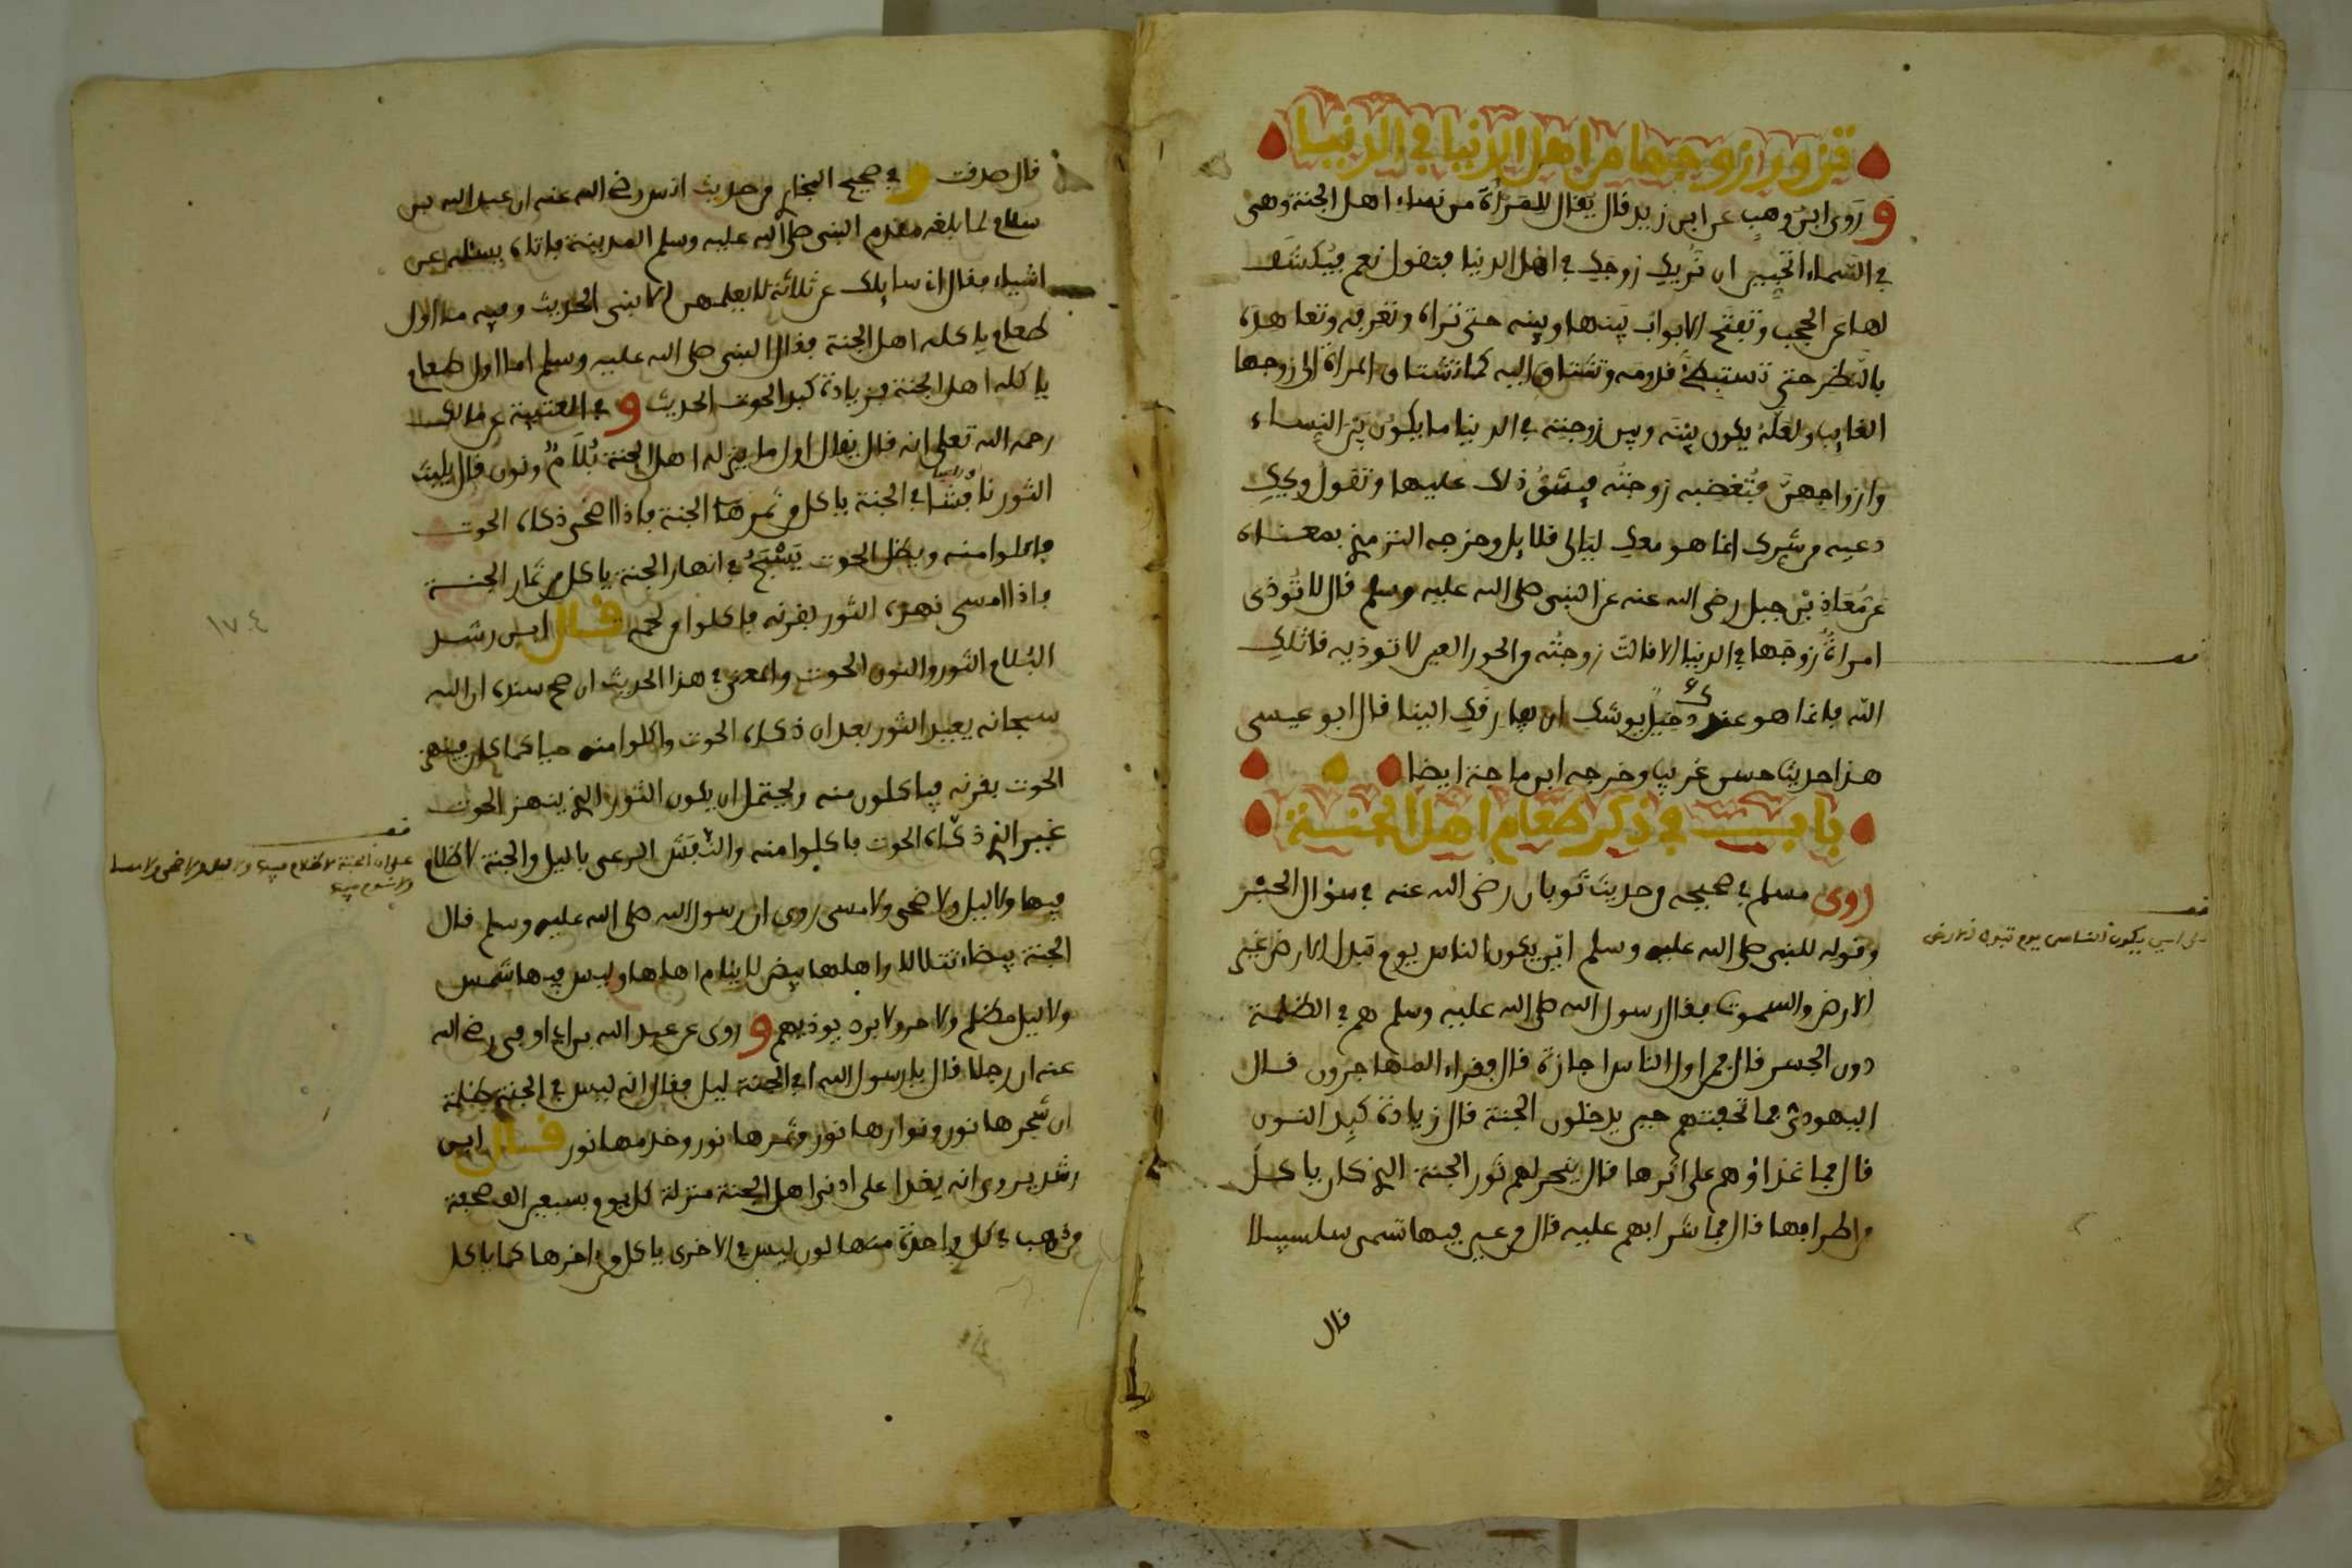 تزور ازوجها من اهل الدنيا في الدنيا
وروى ابن وهب عن ابن زيد قال يقال للمرأة من نساء اهل الجنة وهي
في السماء اتحبين ان نريك زوجك في اهل الدنيا فتقول نعم فيكشف
لها عن الحجب وتفتح الابواب بينها وبينه حتى تراه وتعرفه وتعاهده
بالنظر حتى تستبطئ قدومه وتشتاق اليه كما تشتاق المراة الى زوجها
الغايب ولعله يكون بينه وبين زوجته في الدنيا ما يكون بين النساء
وازواجهن فتغضبه زوجته فيشق ذلك عليها وتقول ويحك
دعيه من شرك انما هو معك ليالي قلايل وخرجه الترمذي بمعناه
عن معاذ بن جبل رضي الله عنه عن النبي صلى الله عليه وسلم قال لا تؤذي
امراة زوجها في الدنيا الا قالت زوجته من الحور العين لا توذيه قاتلك
الله فانما هو عندك دخيل يوشك ان يفارقك الينا قال ابو عيسى
هذا حديث حسن غريب وخرجه ابن ماجة ايضا
باب في ذكر طعام اهل الجنة
روى مسلم في صحيحه من حديث ثوبان رضي الله عنه في سؤال الحبر
وقوله للنبي صلى الله عليه وسلم اين يكون الناس يوم تبدل الارض غير
الارض والسموت فقال رسول الله صلى الله عليه وسلم هم في الظلمة
دون الجسر قال فمن اول الناس اجازة قال فقراء المهاجرون قال
اليهودي فما تحفتهم حين يدخلون الجنة قال زيادة كبد النون
قال فما غذاؤهم على اثرها قال ينحر لهم ثور الجنة الذي كان ياكل
من اطرافها قال فما شرابهم عليه قال من عين فيها تسمى سلسبيلا
قال
قف
على اين يكون الناس يوم تبدل الارض
قال صدقت وفي صحيح البخاري من حديث انس رضي الله عنه ان عبد الله بن
سلام لما بلغه مقدم النبي صلى الله عليه وسلم المدينة فاتاه يسئله عن
اشياء فقال اني سايلك عن ثلاثة لا يعلمهن الا نبي الحديث وفيه ما اول
طعام ياكله اهل الجنة فقال النبي صلى الله عليه وسلم اما اول طعام
ياكله اهل الجنة فزيادة كبد الحوت الحديث وفي العتبية عن مالك
رحمه الله تعلى انه قال يقال اول ما ينزل اهل الجنة بلام ونون قال يلبث
الثور نافشا في الجنة ياكل من ثمرها الجنة فاذا اضحى ذكاه الحوت
فاكلوا منه ويظل الحوت يسبح في انهار الجنة ياكل من ثمار الجنة
فاذا امسى نهزه الثور بقرنه فاكلوا من لحمه قال ابن رشد
البلام الثور والنون الحوت والمعنى في هذا الحديث ان صح سنده ان الله
سبحانه يعيد الثور بعد ان ذكاه الحوت واكلوا منه حيا كما كان فينهز
الحوت بقرنه فياكلون منه ويحتمل ان يكون الثور الذي ينهز الحوت
غير الذي ذكاه الحوت فاكلوا منه والنفش الرعي بالليل والجنة لا ظلام
فيها ولا ليل ولا ضحى ولا مسى روي ان رسول الله صلى الله عليه وسلم قال
الجنة بيضاء تتلالا واهلها بيض لا ينام اهلها وليس فيها شمس
ولا ليل مظلم ولا حر ولا برد يوذيهم وروى عن عبد الله بن ابي اوفى رضي الله
عنه ان رجلا قال يا رسول الله افي الجنة ليل فقال انه ليس في الجنة ظلمة
ان شجرها نور ونوارها نور وثمرها نور وخدمها نور قال ابن
رشد يروى انه يغدا على ادنى اهل الجنة منزلة كل يوم بسبعين الف صحفة
من ذهب في كل واحدة منها لون ليس في الاخرى ياكل من اخرها كما ياكل
١٧٤
قف
على ان الجنة لا ظلام فيها ولا ليل ولا ضحى ولا مسا
ولا شمس فيها